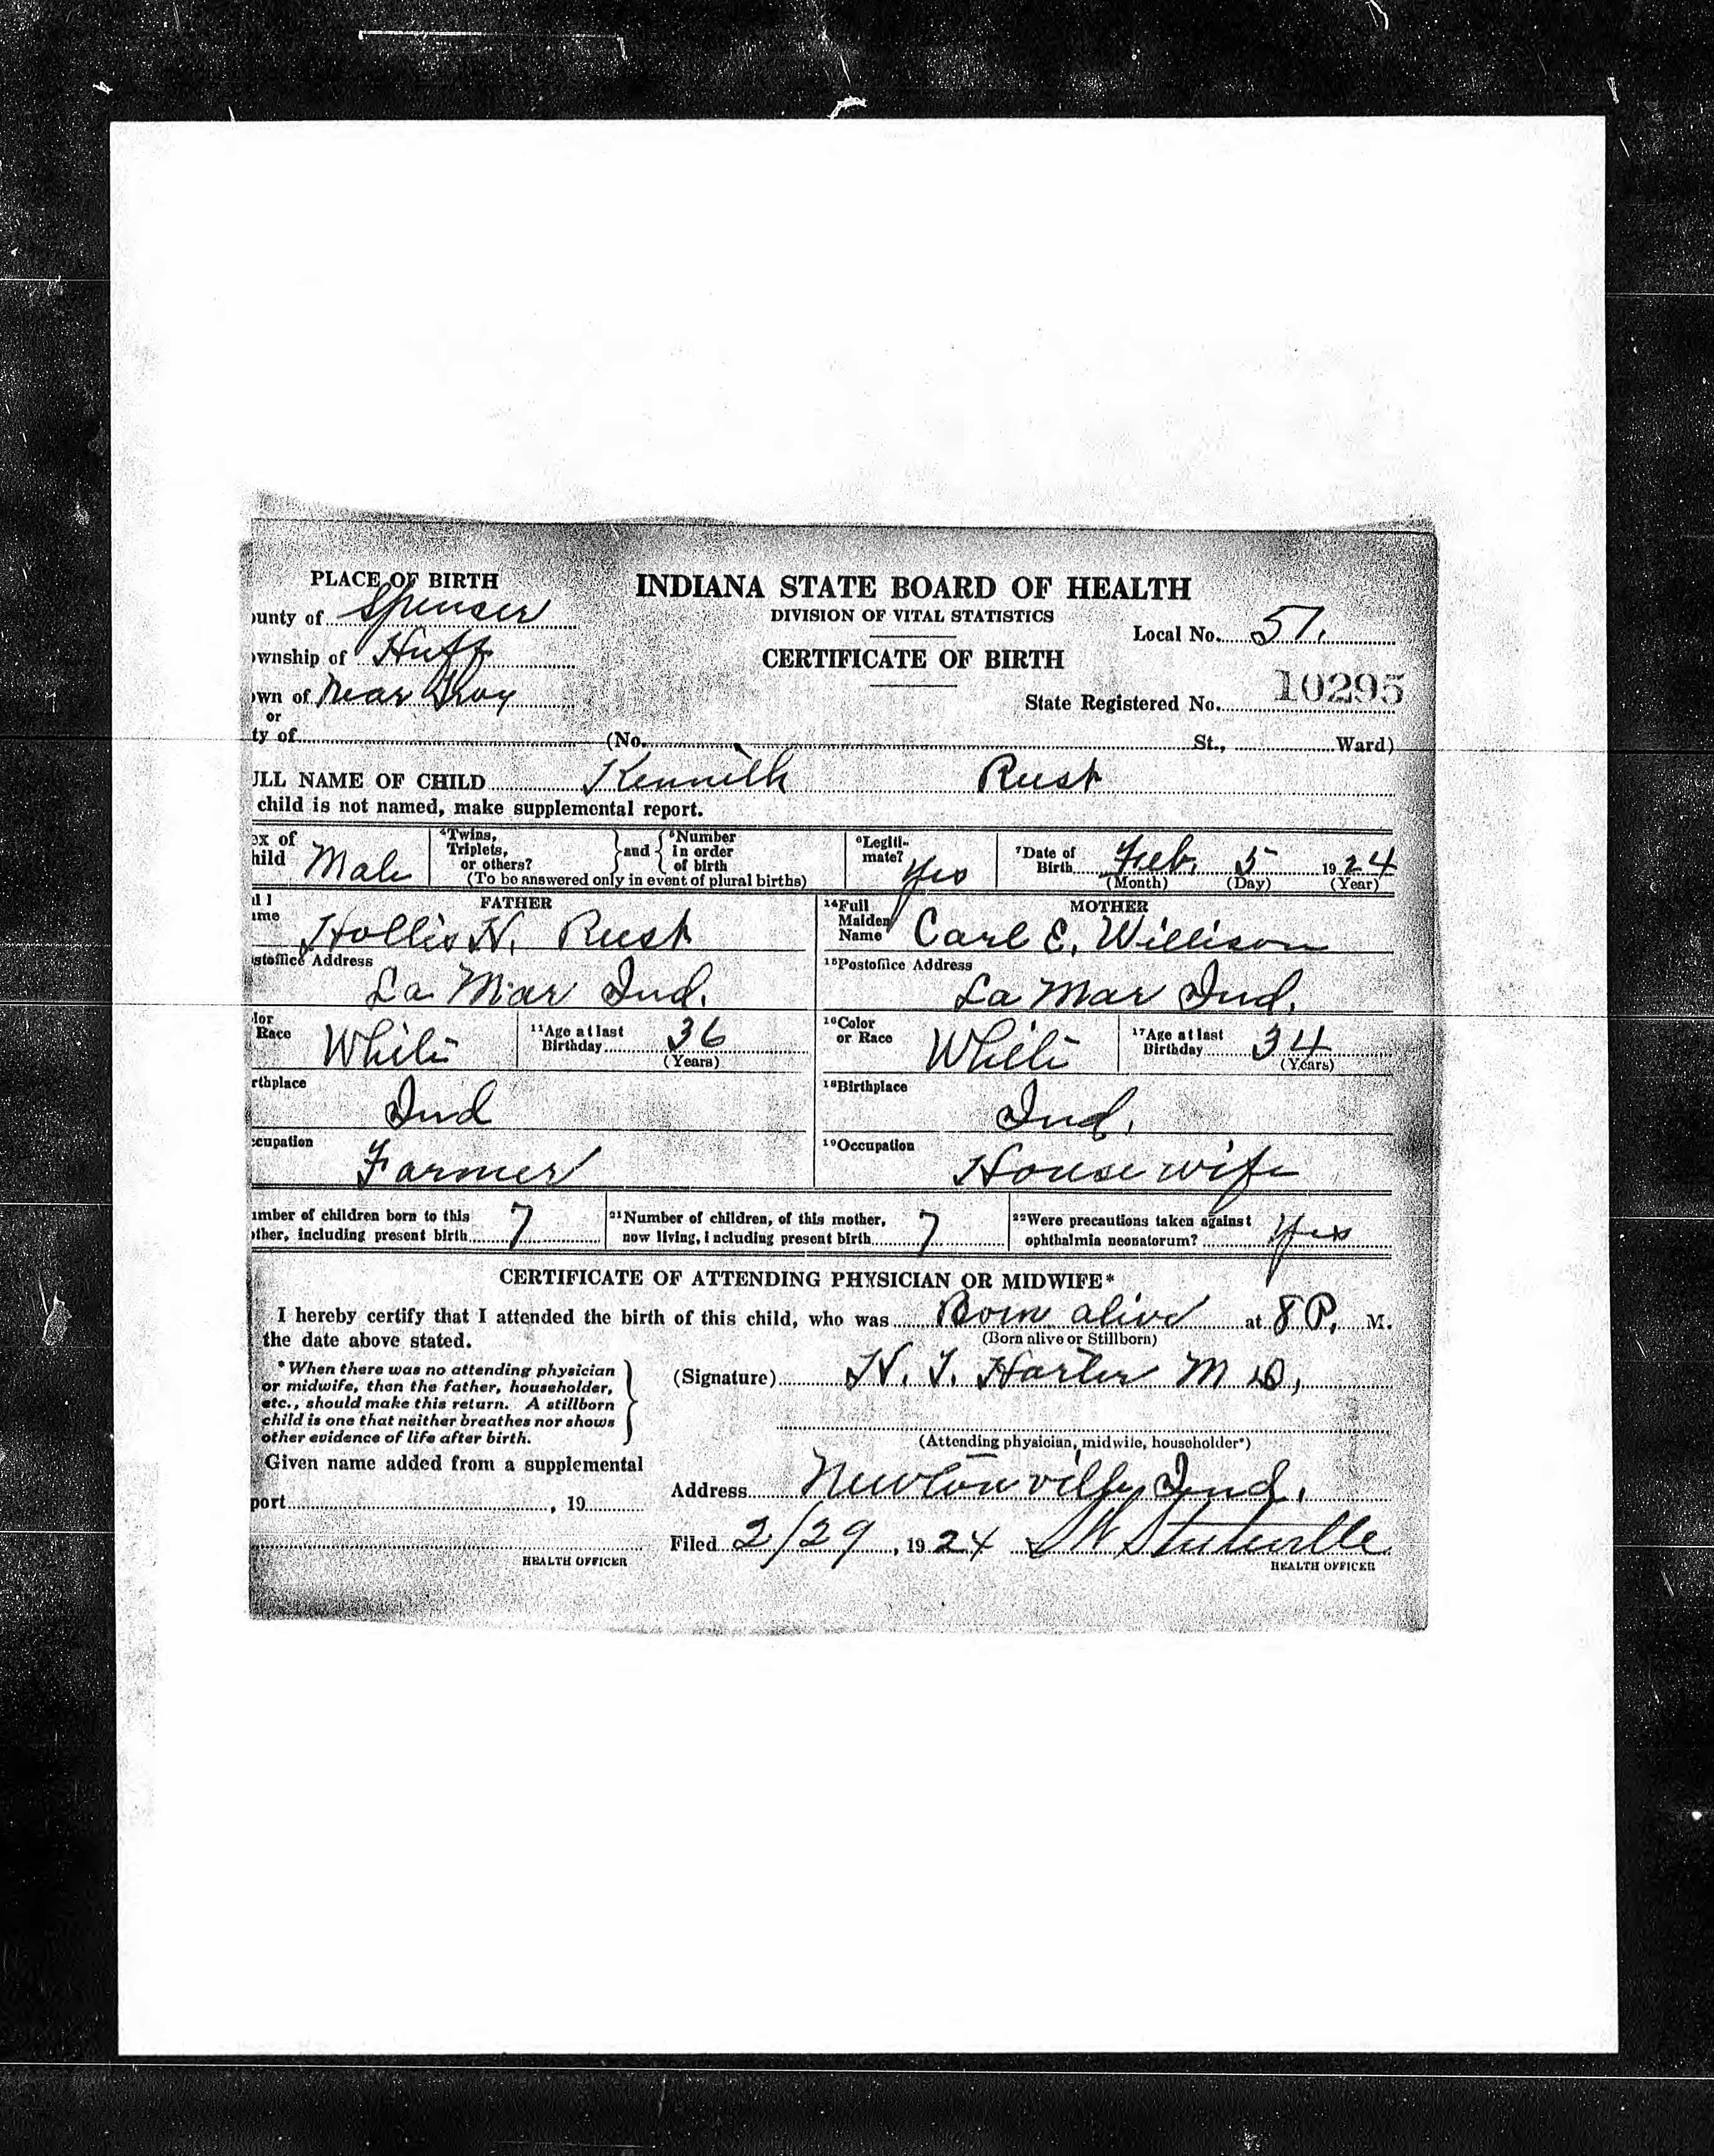 PLACE OF BIRTH
INDIANA STATE BOARD OF HEALTH
DIVISION OF VITAL STATISTICS
CERTIFICATE OF BIRTH
ounty of Spencer
Local No. 51.
ownship of Huff
own of Near Troy
State Registered No. 10295
or
ty of (No. St., Ward)
ULL NAME OF CHILD Kennith Rust
child is not named, make supplemental report.
ex of hild Male
4Twins, Triplets, or others? and 5Number in order of birth
(To be answered only in event of plural births)
6Legiti-mate? Yes
7Date of Birth Feb. 5 1924
(Month) (Day) (Year)
FATHER
ll
ame Hollis H. Rust
MOTHER
14Full Maiden Name Carl E. Willison
stoffice Address
La Mar Ind.
15Postoffice Address
La Mar Ind.
lor Race White
11Age at last Birthday 36
(Years)
16Color or Race White
17Age at last Birthday 34
(Years)
rthplace
Ind
18Birthplace
Ind.
ccupation
Farmer
19Occupation
House wife
umber of children born to this
other, including present birth 7
21Number of children, of this mother,
now living, including present birth 7
22Were precautions taken against
ophthalmia neonatorum? Yes
CERTIFICATE OF ATTENDING PHYSICIAN OR MIDWIFE*
I hereby certify that I attended the birth of this child, who was Born alive at 8 P. M.
(Born alive or Stillborn)
the date above stated.
*When there was no attending physician
or midwife, then the father, householder,
etc., should make this return. A stillborn
child is one that neither breathes nor shows
other evidence of life after birth.
(Signature) H. J. Harter M D.
(Attending physician, midwife, householder*)
Given name added from a supplemental
port , 19
Address Newtonville, Ind.
HEALTH OFFICER
Filed 2/29, 1924
HEALTH OFFICER